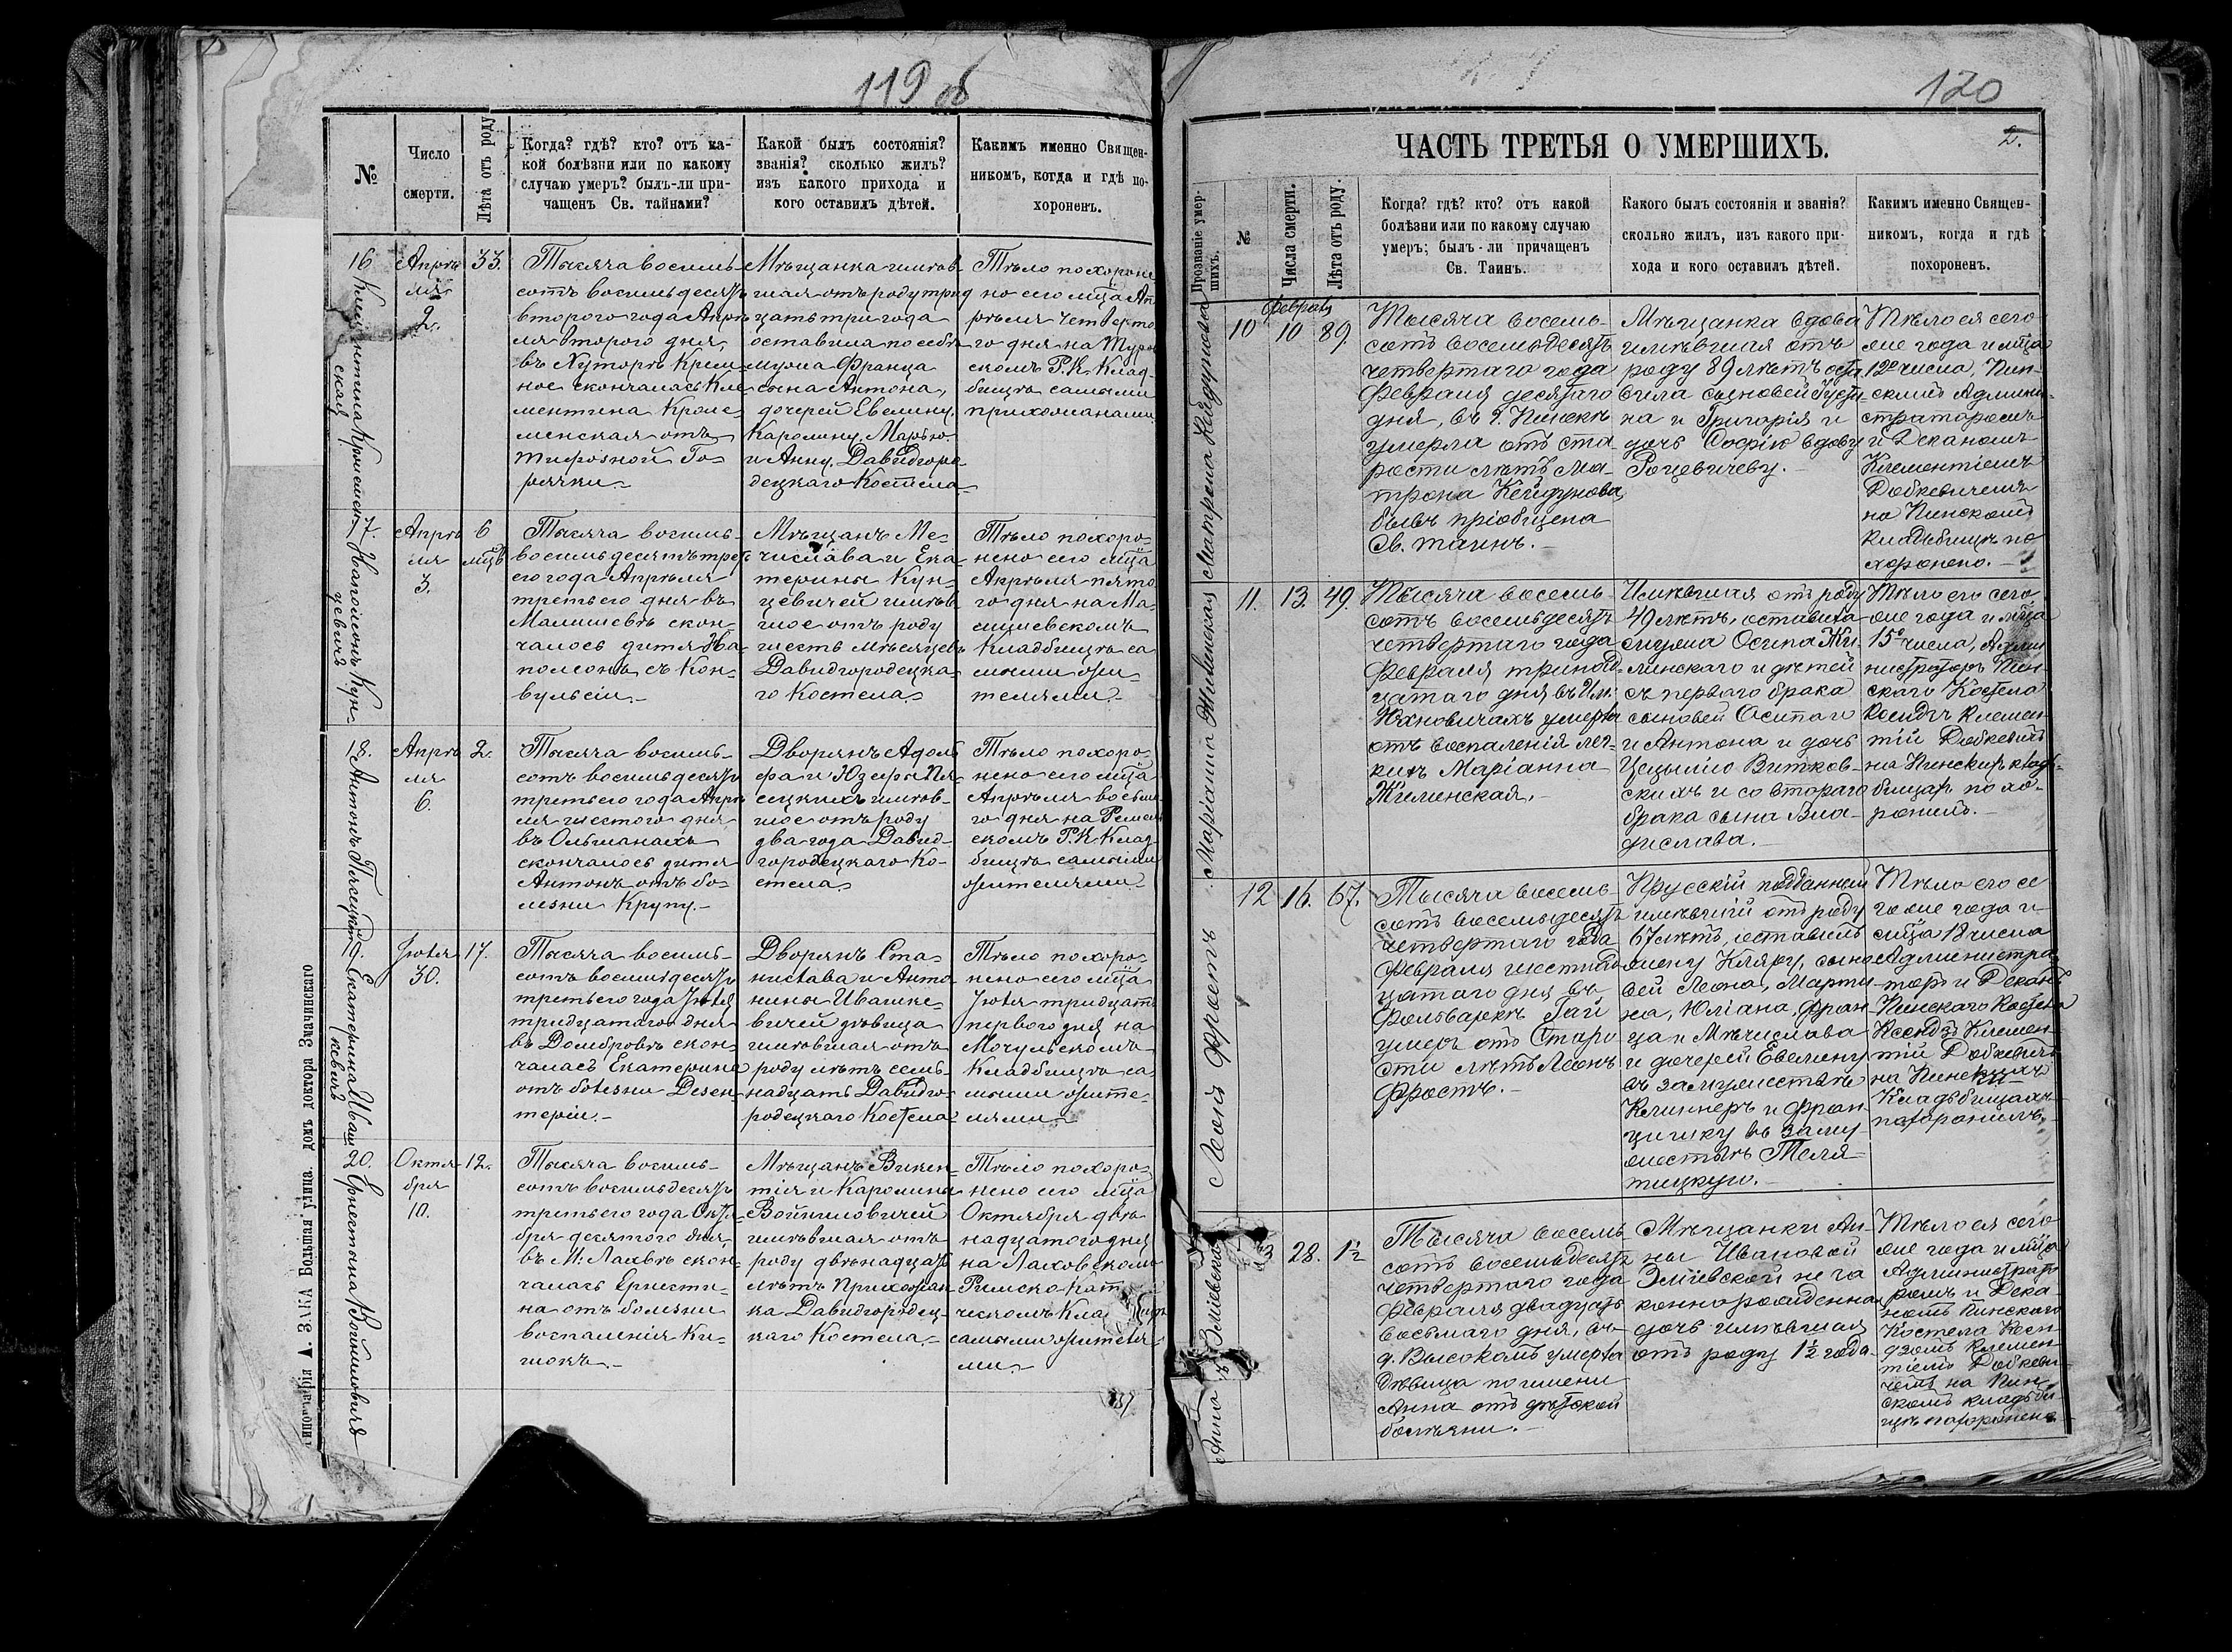 119 об
№
Число
смерти.
Лѣта отъ роду
Когда? гдѣ? кто? отъ ка-
кой болѣзни или по какому
случаю умеръ? былъ-ли при-
чащенъ Св. тайнами?
Какой былъ состоянія?
званія? сколько жилъ?
изъ какого прихода и
кого оставилъ дѣтей.
Какимъ именно Священ-
никомъ, когда и гдѣ по-
хороненъ.
16
Клементина Кромен-
ская
Апрѣ
ля
2.
33.
Тысяча восемь-
сотъ восемьдесятъ
второго года Апрѣ
ля второго дня,
въ Хуторѣ Крем-
ное скончалась Кле
ментина Кроме
менская отъ
тифозной Го-
рячки.-
Мѣщанка имѣв
шая отъ роду трид
цать три года
оставила по себѣ
мужа Франца
сына Антона,
дочерей Евелину,
Каролину, Марью
и Анну, Давидгоро
децкаго Костела-
Тѣло похороне
но сего мѣца Ап
рѣля четверто
го дня на Туров
скомъ Р. К. Клад-
бищѣ самыми
прихожанами
17.
Наполеонъ Кун-
цевичъ
Апрѣ
ля
3.
6
мѣцъ
Тысяча восемь-
восемьдесятъ треть
его года Апрѣля
третьего дня въ
Малишевѣ скон-
чалось дитя На-
полеонъ съ Кон-
вульсіи.-
Мѣщанъ Ме-
числава и Ека-
терины Кун-
цевичей имѣв
шое отъ роду
шесть мѣсяцевъ
Давидгородецка-
го Костела-
Тѣло похоро-
нено сего мѣца
Апрѣля пято
го дня на Ма-
лишевскомъ
Кладбищѣ са
мыми жи-
телями.-
18.
Антонъ Пясецкій
Апрѣ
ля
6.
2.
Тысяча восемь-
сотъ восемьдесятъ
третьего года Апрѣ
ля шестого дня
въ Ольманахъ
скончалось дитя
Антонъ отъ бо-
лезни Крупу.-
Дворянъ Адоль
фа и Юзефы Пя-
сецкихъ имѣв-
шое отъ роду
два года Давид-
городецкаго Ко-
стела-
Тѣло похоро-
нено сего мѣца
Апрѣля восьмо
го дня на Ремель
скомъ Р. К. Клад-
бищѣ самыми
жителями-
19.
Екатерина Иваш
кевичъ
Іюля
30.
17.
Тысяча восемь-
сотъ восемьдесятъ
третьего года Іюля
тридцатаго дня
въ Домбровѣ скон-
чалась Екатерина
отъ болезни Дезен-
теріи.-
Дворянъ Ста-
нислава и Анто-
нины Ивашке-
вичей дѣвица
имѣвшая отъ
роду лѣтъ семь-
надцать Давидго-
родецкаго Костела
Тѣло похоро-
нено сего мѣца
Іюля тридцать
первого дня на
Мочульскомъ
Кладбищѣ са-
мыми жите-
лями-
20.
Ернестина Войниловичъ
Октя-
бря
10.
12.
Тысяча восемь-
сотъ восемьдесятъ
третьего года Октя-
бря десятого дня
въ М: Лахвѣ скон-
чалась Ернести-
на отъ болезни
воспаленія Ки-
шокъ.-
Мѣщанъ Викен-
тія и Каролины
Войниловичей
имѣвшая отъ
роду двѣнадцать
лѣтъ Прихожан
ка Давидгородец-
каго Костела.-
Тѣло похоро-
нено сего мѣца
Октября двѣ
надцатого дня
на Лаховскомъ
Римско-Кат
ческомъ Кла
самыми жителя
ми-
Типографія А. ЗАКА Большая улица. домъ доктора Змачинскаго
120
2.
ЧАСТЬ ТРЕТЬЯ О УМЕРШИХЪ.
Прозваніе умер-
шихъ.
№
Числа смерти.
Лѣта отъ роду.
Когда? гдѣ? кто? отъ какой
болѣзни или по какому случаю
умеръ; былъ-ли причащенъ
Св. Таинъ.
Какого былъ состоянія и званія?
сколько жилъ, изъ какого при-
хода и кого оставилъ дѣтей.
Какимъ именно Священ-
никомъ, когда и гдѣ
похороненъ.
Матрона Кейдунова
Февраль
10
10
89.
Тысяча восемь-
сотъ восемьдесятъ
четвертаго года
Февраля десятаго
дня, въ г. Пинскѣ
умерла отъ ста
рости лѣтъ Ма-
трона Кейдунова,
бывъ пріобщена
Св. таинъ.-
Мѣщанка вдова
имѣвшая отъ
роду 89 лѣтъ оста
вила сыновей Густи-
на и Григорія и
дочь Софію вдову
Роцевичеву.-
Тѣло ея сего
же года и мѣца
12го числа, Пин-
скимъ Админи-
страторомъ
и Деканомъ
Клементіемъ
Добкевичемъ
на Пинскомъ
кладбищѣ по
хоронено.-
Маріанна Жилинская
11.
13.
49.
Тысяча восемь-
сотъ восемьдесятъ
четвертаго года
Февраля тринад-
цатаго дня въ Им:
Юхновичахъ умерла
отъ воспаленія лег-
кихъ Маріанна
Жилинская.-
Имѣвшая отъ роду
49 лѣтъ, оставила
мужа Осипа Жи-
линскаго и дѣтей
съ перваго брака
сыновей Осипа и
и Антона и дочь
Цецылію Витков-
скихъ и со втораго
брака сына Вла-
дислава.-
Тѣло его сего
же года и мѣца
15го числа, Адми
нистраторъ Пин-
скаго Костела
Ксендзъ Клемен-
тій Добкевичъ
на Пинскихъ клад-
бищахъ похо-
ронилъ.-
Леонъ Фростъ
12
16.
67.
Тысяча восемь-
сотъ восемьдесятъ
четвертаго года
Февраля шестнад-
цатаго дня въ
Фольваркѣ Гай
умеръ отъ Старо
сти лѣтъ Леонъ
Фростъ.-
Прусскій подданный
имѣвшій отъ роду
67 лѣтъ, оставилъ
жену Кляру, сыно
вей Леона, Марти
на, Юліана, Фран
ца и Мѣчислава
и дочерей Евелину
въ замужествѣ
Клиннеръ и Фран-
цишку въ заму-
жествѣ Теля-
тицкую.-
Тѣло его се
го же года и
мѣца 18 числа
Администра
торъ и Деканъ
Пинскаго Костела
Ксендзъ Клемен-
тій Добкевичъ
на Пинскихъ
Кладбищахъ
похоронилъ.
Анна Змѣевская
13
28.
1½
Тысяча восемь
сотъ восемьдесятъ
четвертаго года
Февраля двадцать
восьмаго дня, въ
д. Высокомъ умерла
дѣвица по имени
Анна отъ дѣтской
болѣзни.-
Мѣщанки Ан-
ны Ивановой
Змѣевской неза
коннорожденная
дочь имѣвшая
отъ роду 1½ года.
Тѣло ея сего
же года и мѣца
Администрато
ромъ и Дека-
номъ Пинскаго
Костела Ксен-
дзомъ Клемен-
тіемъ Добкеви-
чемъ на Пин-
скомъ кладьби-
щѣ похоронено